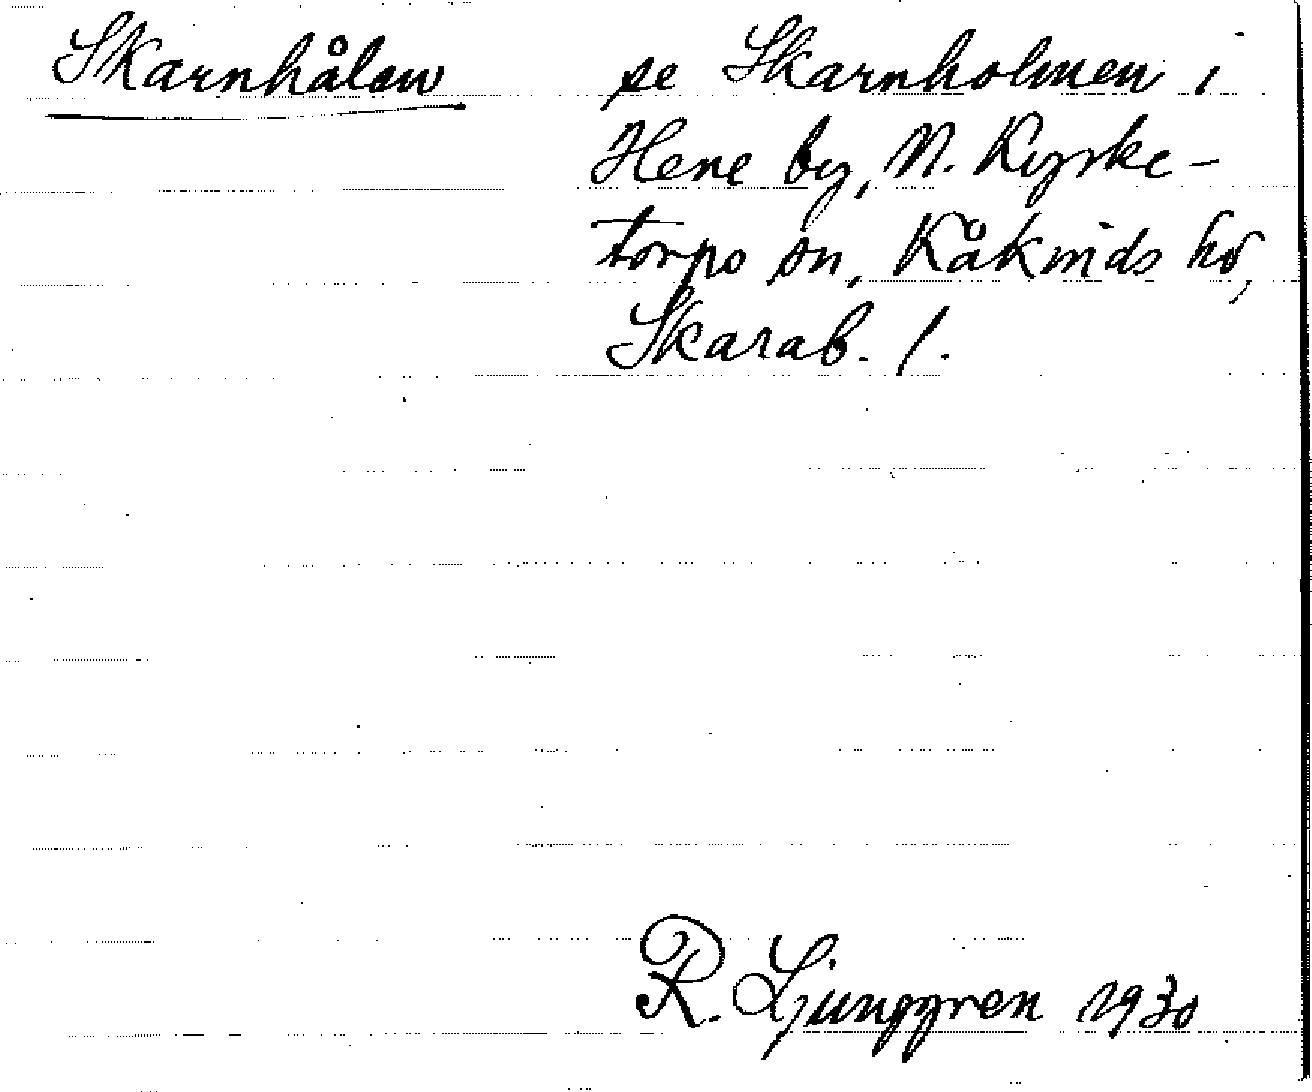 Skarnhålen se Skarnholmen i
Hene by, N. Kyrke-
torps sn, Kåkinds hd,
Skarab. l.
R. Ljunggren 1930